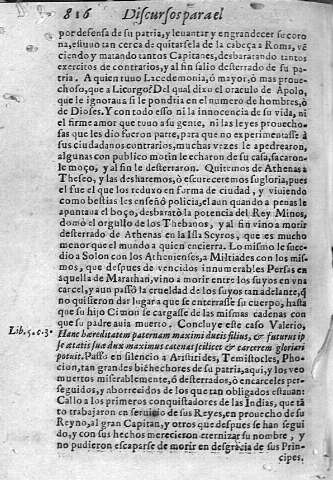 816 Discursos para el
por defensa de su patria, y leuantar y engrandecer su coro
na, estuuo tan cerca de quitarsela de la cabeça a Roma, vẽ
ciendo y matando tantos Capitanes, desbaratando tantos
exercitos de contrarios, y al fin salio desterrado de su pa-
tria. A quien tuuo Lacedemonia, ó mayor, ó mas proue-
choso, que a Licorgo? Del qual dixo el oraculo de Apolo,
que le ignoraua si le pondria en el numero de hombres, ò
de Dioses. Y con todo esso ni la innocencia de su vida, ni
el firme amor que tuuo a su gente, ni las leyes prouecho-
sas que les dio fueron parte, para que no experimentasse a
sus ciudadanos contrarios, muchas vezes le apedrearon,
algunas con publico motin le echaron de su casa, sacaron-
le moço, y al fin le desterraron. Quitemos de Athenas a
Theseo, y las desharemos, ò escureceremos su gloria, pues
el fue el que los reduxo en forma de ciudad, y viuiendo
como bestias les enseñò policia, el aun quando a penas le
apuntaua el boço, desbaratò la potencia del Rey Minos,
domò el orgullo de los Thebanos, y al fin vino a morir
desterrado de Athenas en la Isla Scyros, que es mucho
menor que el mundo a quien encierra. Lo mismo le suce-
dio a Solon con los Athenienses, a Miltiades con los mis-
mos, que despues de vencidos innumerables Persas en
aquella de Marathan, vino a morir entre los suyos en vna
carcel, y aun passò la crueldad de los suyos tan adelante, q̃
no quisieron dar lugar a que se enterrasse su cuerpo, hasta
que su hijo Cimon se cargasse de las mismas cadenas con
que su padre auia muerto. Concluye este caso Valerio,
Lib. 5. c. 3. Hanc hæreditatem paternam maximi ducis filius, & futurus ip
se ætatis suæ dux maximus catenas scilicet & carcerem gloriari
potuit. Passò en silencio a Aristides, Temistocles, Pho-
cion, tan grandes biẽhechores de su patria, aqui, y los veo
muertos miserablemente, ó desterrados, ò en carceles per-
seguidos, y aborrecidos de los que tan obligados estauan:
Callo a los primeros conquistadores de las Indias, que tã
to trabajaron en seruicio de sus Reyes, en prouecho de su
Reyno, al gran Capitan, y otros que despues se han segui
do, y con sus hechos merecieron eternizar su nombre, y
no pudieron escaparse de morir en desgracia de sus Prin-
cipes.